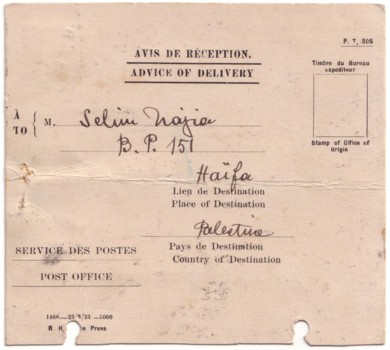 P. T, 505
AVIS DE RÉCEPTION.
ADVICE OF DELIVERY
Timbre du Bureau
expéditeur
Stamp of Office of
Origin
À
TO { M. Selim Najia
B. P. 151
Haïfa
Lieu de Destination
Place of Destination
Palestine
Pays de Destination
Country of Destination
SERVICE DES POSTES
POST OFFICE
1468—23/8/23—5000
R. H. Press